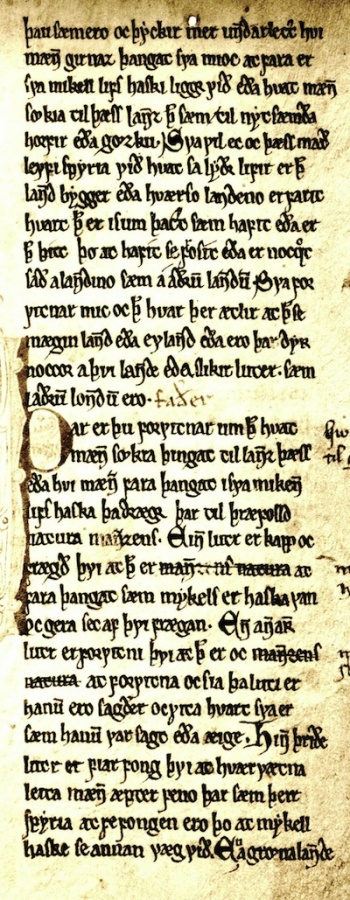 þau sæm ero oc þyckir mer undarlect hvi
mæn̄ girnaz þangat sva mioc at fara er
sva mikell lifs haski liggr við eða hvat mæn̄
sœkia til þæss lanz þ̄ sæm til nytsæmða
horfir eða gozku. Sva vil ec oc þæss með
leyfi spyria við hvat sa lyðr lifir er þ̄
land bygger eða hværso landeno er farit
hvart þ̄ er isum þact sæm hafit eða er
þ̄ þitt þo at hafit se frosit eða er nocqr̄
sáð a landino sæm a aðrū landū. Sva for
vitnar mic oc þ̄ hvar þer ætlit at þ̄ se
mægin land eða eyland eða ero þar dyr
noccor a þvi lande eða slikir luter. sæm
i aðrū londū ero. faðer
Þar er þu forvitnar um þ̄ hvat
mæn̄ sœkia þingat til lanz þæss
eða hvi mæn̄ fara þangat i sva miken̄
lifs haska þa drægr þar til þræfolld
natura man̄zens. Ein̄ lutr er kapp oc
frægð þvi at þ̄ er natura at
fara þangat sæm mykels er haska van
oc gera sec af þvi frægan. En an̄ar̄
lutr er forvitni þvi at þ̄ er oc man̄zens
natura at forvitna oc sia þa luti er
hanū ero sagðer oc vita hvart sva er
sæm hanū var sagt eða æige. Hin̄ þriðe
lutr er fiar fong þvi at hværvætna
leita mæn̄ æpter feno þar sæm þeir
spyria at fefongen ero þo at mykell
haske se annan væg við. En a grœnalande